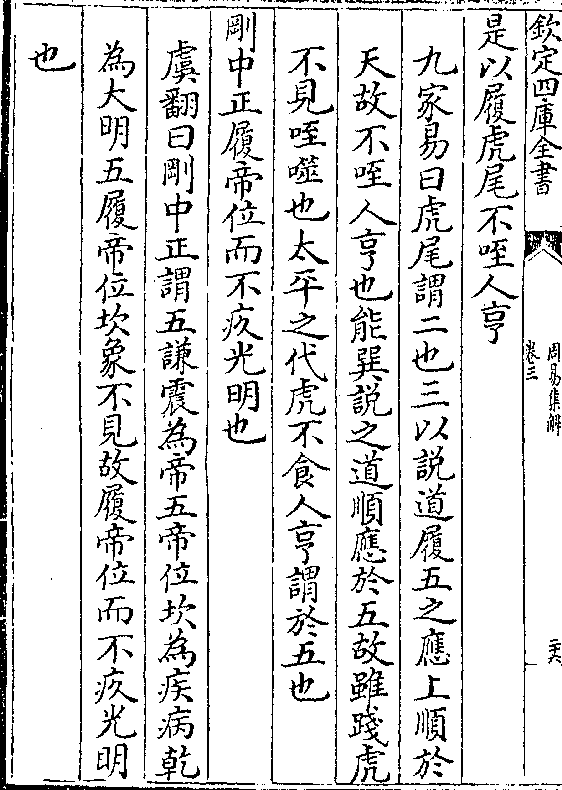 欽定四庫全書
周易集解
卷三
二六
是以履虎尾不咥人亨
九家易曰虎尾謂二也三以説道履五之應上順於
天故不咥人亨也能巽説之道順應於五故雖踐虎
不見咥噬也太平之代虎不食人亨謂於五也
剛中正履帝位而不疚光明也
虞翻曰剛中正謂五謙震為帝五帝位坎為疾病乾
為大明五履帝位坎象不見故履帝位而不疚光明
也